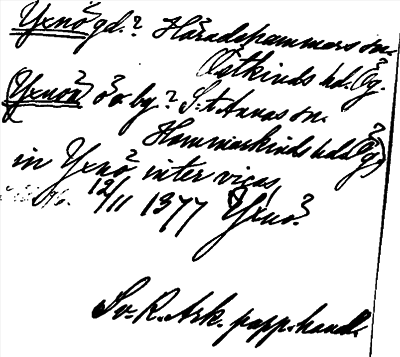 Yxnö gd.? Häradshammars sn.
Östkinds hd. Ög.
(Yxnön ö o. by? S:t Annas sn.
Hammarkinds hd. Ög.)
in Yxnö inter vicas
12/11 1377 Yxnö.
Sv. R. Ark. papp. hand.